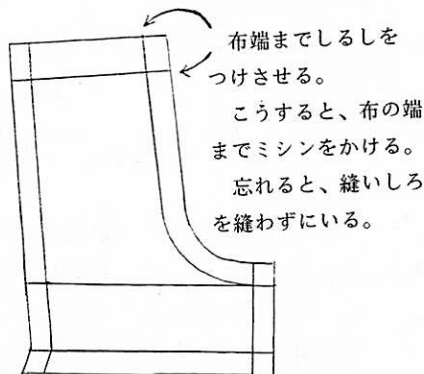 布端までしるしを
つけさせる。
こうすると、布の端
までミシンをかける。
忘れると、縫いしろ
を縫わずにいる。